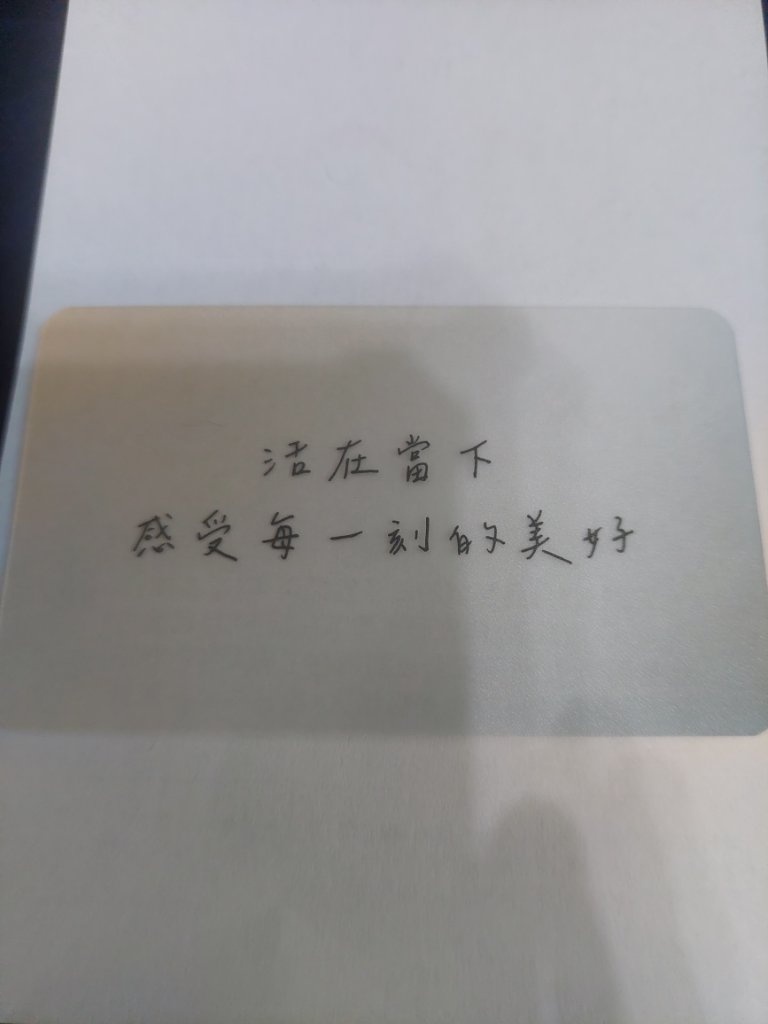 活在當下
感受每一刻的美好